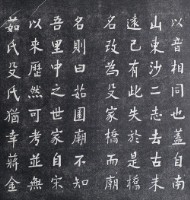 以音相同也蓋自南
山東沙二志去古未
遠已有此失於是橋
名改為殳家橋而廟
名則曰茹圃廟不知
吾里中之世家自宋
以來歷然可考並無
茹氏殳氏猶幸蔣金